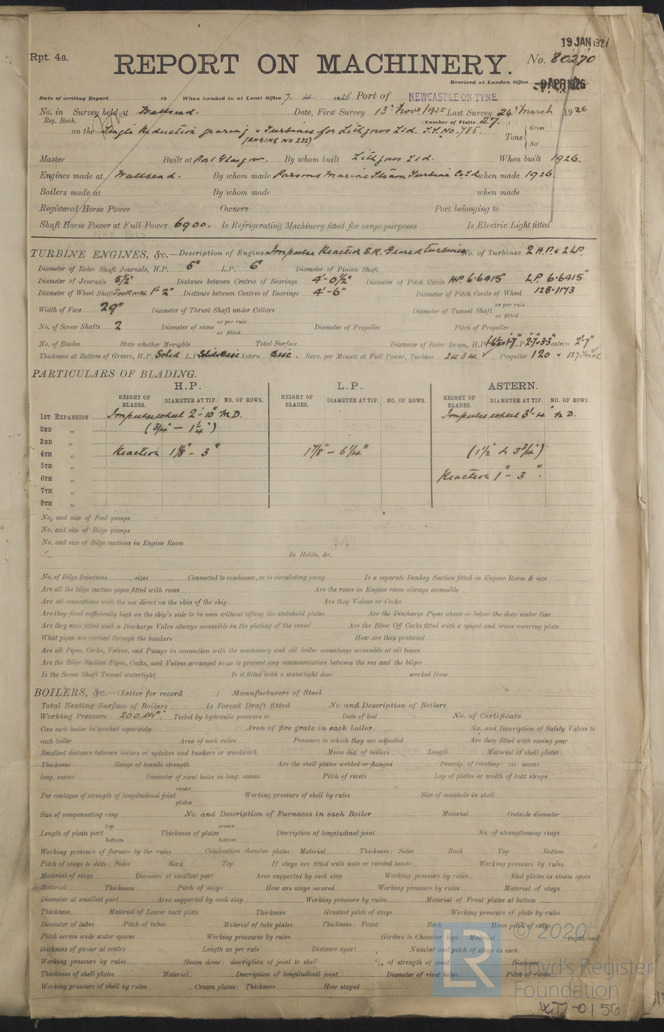 19 JAN 1927
Rpt. 4a.
REPORT ON MACHINERY.
No. 80270
Received at London Office
9 APR 1926
Date of writing Report 19 When handed in at Local Office 7. 4. 1926 Port of NEWCASTLE ON TYNE
No. in Survey held at Wallsend. Date, First Survey 13th Novr 1925 Last Survey 24th March 1926
Reg. Book. Number of Visits 27
on the Single Reduction gearing & Turbines for Lithgows Ltd. S.S. No. 785. Tons Gross Net
Master Built at Port Glasgow. By whom built Lithgows Ltd. When built 1926.
Engines made at Wallsend. By whom made Parsons Marine Steam Turbine Co Ltd when made 1926
Boilers made at By whom made when made
Registered Horse Power Owners Port belonging to
Shaft Horse Power at Full Power 6900. Is Refrigerating Machinery fitted for cargo purposes Is Electric Light fitted
TURBINE ENGINES, &c.—Description of Engines Impulse Reaction S.R. Geared Turbines No. of Turbines 2 H.P. & 2 L.P.
Diameter of Rotor Shaft Journals, H.P. 5" L.P. 6" Diameter of Pinion Shaft
Diameter of Journals 5½" Distance between Centres of Bearings 4'-0½" Diameter of Pitch Circle HP 6.6915 L.P. 6.6915"
Diameter of Wheel Shaft Journal 1'-2" Distance between Centres of Bearings 4'-6" Diameter of Pitch Circle of Wheel 128.1173
Width of Face 29" Diameter of Thrust Shaft under Collars Diameter of Tunnel Shaft as per rule as fitted
No. of Screw Shafts 2 Diameter of same as per rule as fitted Diameter of Propeller Pitch of Propeller
No. of Blades State whether Moveable Total Surface Diameter of Rotor Drum, H.P. L.P. 27.33 Astern 2'-7"
Thickness at Bottom of Groove, H.P. Solid L.P. Astern Disc. Revs. per Minute at Full Power, Turbine 2434 Propeller 120
PARTICULARS OF BLADING.
H.P. L.P. ASTERN.
HEIGHT OF BLADES. DIAMETER AT TIP. NO. OF ROWS. HEIGHT OF BLADES. DIAMETER AT TIP. NO. OF ROWS. HEIGHT OF BLADES. DIAMETER AT TIP. NO. OF ROWS.
1ST EXPANSION Impulse wheel 2'-10" M.D. Impulse wheel 3'-4" M.D.
2ND " (3/4" – 1¼")
3RD "
4TH " Reaction 1⅛" – 3" 1⅞" – 6¼" (1½ to 3¾")
5TH "
6TH " Reaction 1" – 3".
7TH "
8TH "
No. and size of Feed pumps
No. and size of Bilge pumps
No. and size of Bilge suctions in Engine Room
In Holds, &c.
No. of Bilge Injections sizes Connected to condenser, or to circulating pump Is a separate Donkey Suction fitted in Engine Room & size
Are all the bilge suction pipes fitted with roses Are the roses in Engine room always accessible
Are all connections with the sea direct on the skin of the ship Are they Valves or Cocks
Are they fixed sufficiently high on the ship's side to be seen without lifting the stokehold plates Are the Discharge Pipes above or below the deep water line
Are they each fitted with a Discharge Valve always accessible on the plating of the vessel Are the Blow Off Cocks fitted with a spigot and brass covering plate
What pipes are carried through the bunkers How are they protected
Are all Pipes, Cocks, Valves, and Pumps in connection with the machinery and all boiler mountings accessible at all times
Are the Bilge Suction Pipes, Cocks, and Valves arranged so as to prevent any communication between the sea and the bilges
Is the Screw Shaft Tunnel watertight Is it fitted with a watertight door worked from
BOILERS, &c.—(Letter for record ) Manufacturers of Steel
Total Heating Surface of Boilers Is Forced Draft fitted No. and Description of Boilers
Working Pressure 200 Tested by hydraulic pressure to Date of test No. of Certificate
Can each boiler be worked separately Area of fire grate in each boiler No. and Description of Safety Valves to
each boiler Area of each valve Pressure to which they are adjusted Are they fitted with easing gear
Smallest distance between boilers or uptakes and bunkers or woodwork Mean dia. of boilers Length Material of shell plates
Thickness Range of tensile strength Are the shell plates welded or flanged Descrip. of riveting: cir. seams
long. seams Diameter of rivet holes in long. seams Pitch of rivets Lap of plates or width of butt straps
Per centages of strength of longitudinal joint rivets plates Working pressure of shell by rules Size of manhole in shell
Size of compensating ring No. and Description of Furnaces in each Boiler Material Outside diameter
Length of plain part top bottom Thickness of plates crown bottom Description of longitudinal joint No. of strengthening rings
Working pressure of furnace by the rules Combustion chamber plates: Material Thickness: Sides Back Top Bottom
Pitch of stays to ditto: Sides Back Top If stays are fitted with nuts or riveted heads Working pressure by rules
Material of stays Diameter at smallest part Area supported by each stay Working pressure by rules End plates in steam space
Material Thickness Pitch of stays How are stays secured Working pressure by rules Material of stays
Diameter at smallest part Area supported by each stay Working pressure by rules Material of Front plates at bottom
Thickness, Material of Lower back plate Thickness Greatest pitch of stays Working pressure of plate by rules
Diameter of tubes Pitch of tubes Material of tube plates Thickness: Front Back Mean pitch of stays
Pitch across wide water spaces Working pressures by rules Girders to Chamber tops: Material Depth and
thickness of girder at centre Length as per rule Distance apart Number and pitch of stays in each
Working pressure by rules Steam dome: description of joint to shell % of strength of joint Diameter
Thickness of shell plates Material Description of longitudinal joint Diameter of rivet holes Pitch of
Working pressure of shell by rules Crown plates: Thickness How stayed
© 2020
LR
Lloyd's Register
Foundation